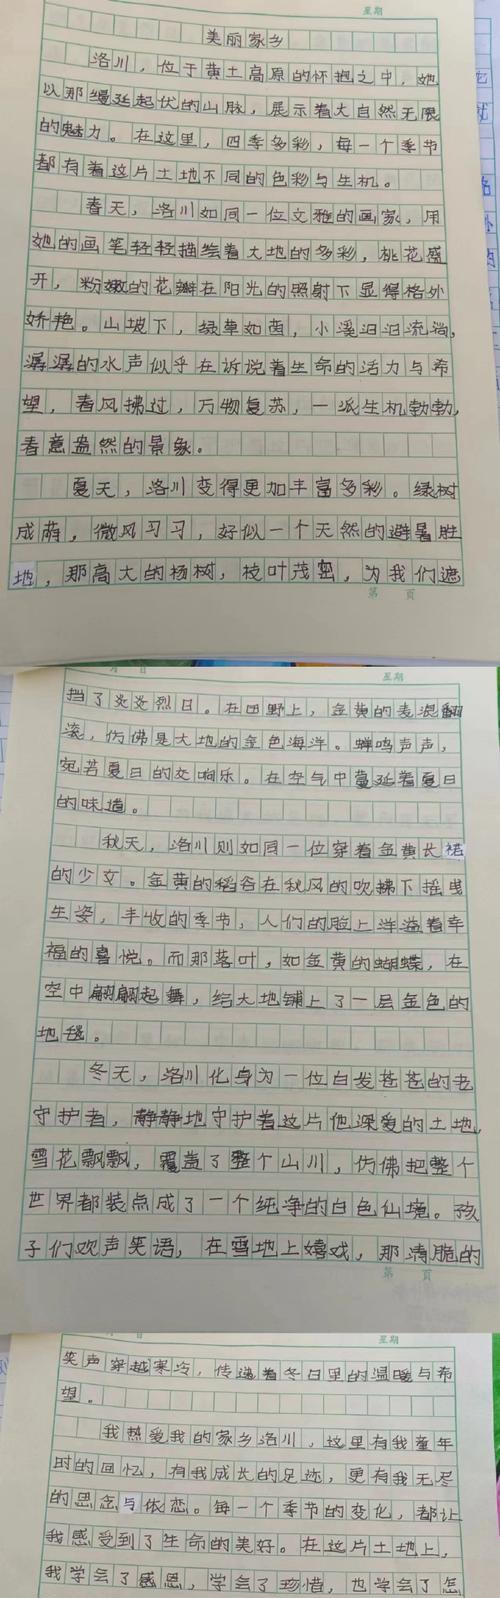 星期
美丽家乡
洛川，位于黄土高原的怀抱之中，她
以那缦延起伏的山脉，展示着大自然无限
的魅力。在这里，四季多彩，每一个季节
都有着这片土地不同的色彩与生机。
春天，洛川如同一位文雅的画家，用
她的画笔轻轻描绘着大地的多彩，桃花盛
开，粉嫩的花瓣在阳光的照射下显得格外
娇艳。山坡下，绿草如茵，小溪汩汩流淌，
潺潺的水声似乎在诉说着生命的活力与希
望，春风拂过，万物复苏，一派生机勃勃，
春意盎然的景象。
夏天，洛川变得更加丰富多彩。绿树
成荫，微风习习，好似一个天然的避暑胜
地，那高大的杨树，枝叶茂密，为我们遮
第 页
星期
挡了炎炎烈日。在田野上，金黄的麦浪翻
滚，仿佛是大地的金色海洋。蝉鸣声声，
宛若夏日的交响乐。在空气中蔓延着夏日
的味道。
秋天，洛川则如同一位穿着金黄长裙
的少女。金黄的稻谷在秋风的吹拂下摇曳
生姿，丰收的季节，人们的脸上洋溢着幸
福的喜悦。而那落叶，如金黄的蝴蝶，在
空中翩翩起舞，给大地铺上了一层金色的
地毯。
冬天，洛川化身为一位白发苍苍的老
守护者，静静地守护着这片他深爱的土地
雪花飘飘，覆盖了整个山川，仿佛把整个
世界都装点成了一个纯净的白色仙境。孩
子们欢声笑语，在雪地上嬉戏，那清脆的
第 页
星期
笑声穿越寒冷，传递着冬日里的温暖与希
望。
我热爱我的家乡洛川，这里有我童年
时的回忆，有我成长的足迹，更有我无尽
的思念与依恋。每一个季节的变化，都让
我感受到了生命的美好。在这片土地上，
我学会了感恩，学会了珍惜，也学会了怎